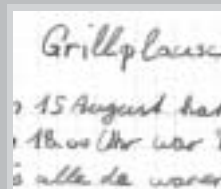 Grillplausc
15 August ha
18.00 Uhr war
alle da waren